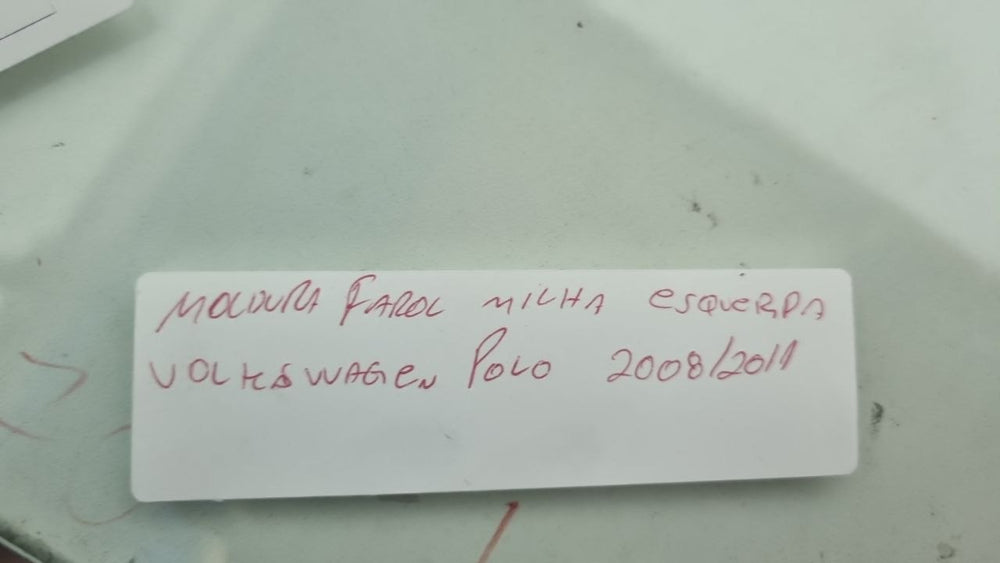 MOLDURA FAROL MILHA ESQUERDA
VOLKSWAGEN POLO 2008/2011